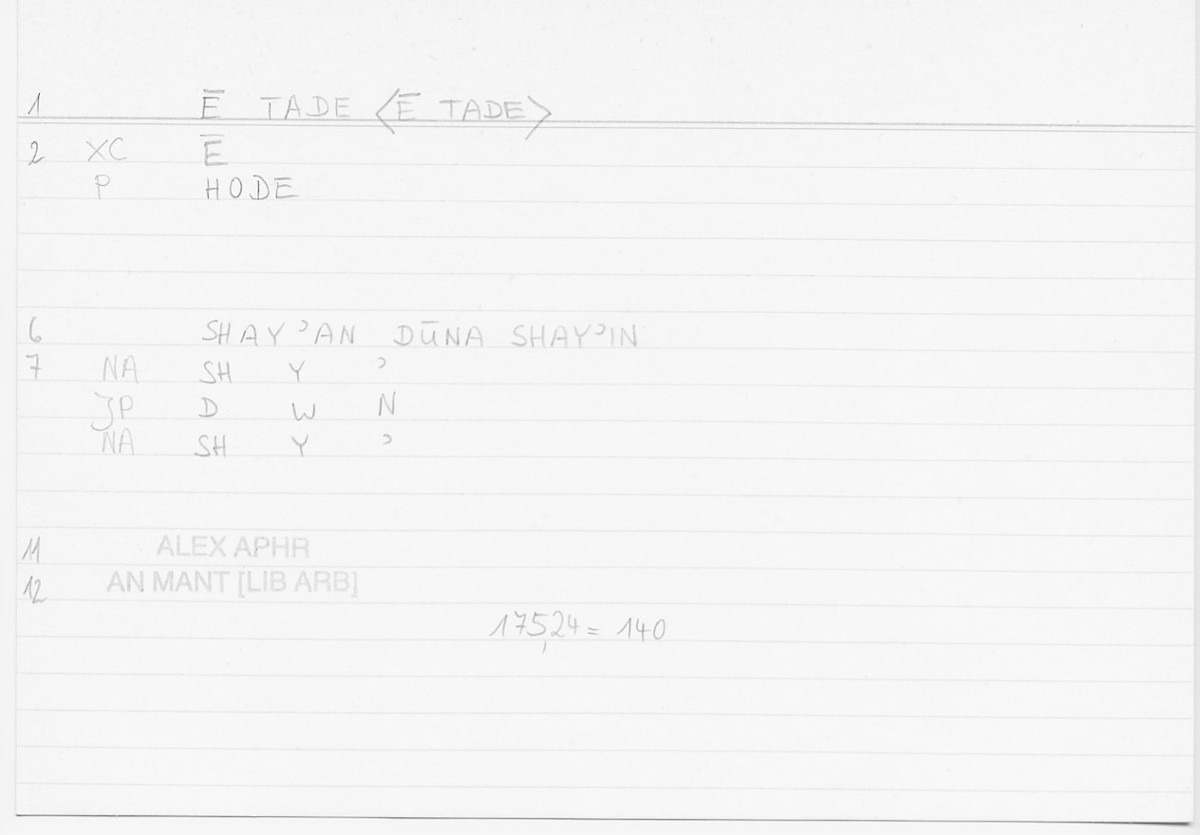 1 Ē TADE <Ē TADE>
2 XC Ē
P HODE
6 SHAY'AN DŪNA SHAY'IN
7 NA SH Y '
JP D W N
NA SH Y '
11 ALEX APHR
12 AN MANT [LIB ARB]
175,24 = 140